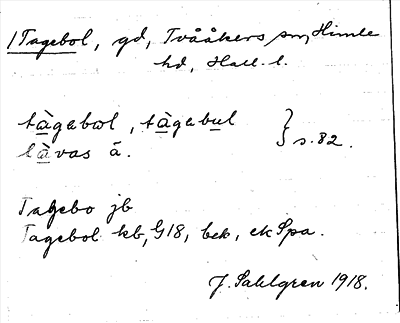 1 Tagebol, gd, Tvååkers sn, Himle
hd, Hall. l.
tàgebωl, tàgebul } s. 82.
làvas á.
Tagebo jb
Tagebol kb, G18, bek, ek Spa.
J. Sahlgren 1918.